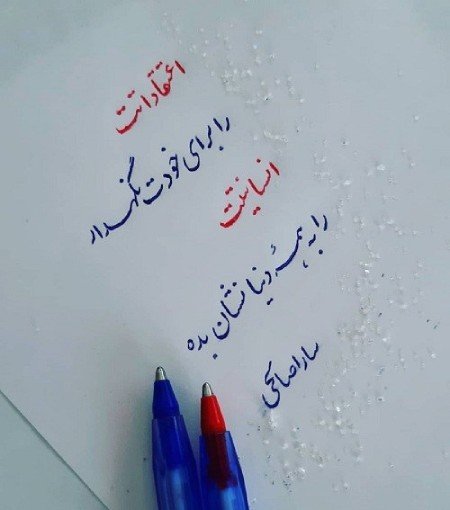 اعتقاداتت
را برای خودت نگهدار
انسانیتت
را به همهٔ دنیا نشان بده
سارا صالحی